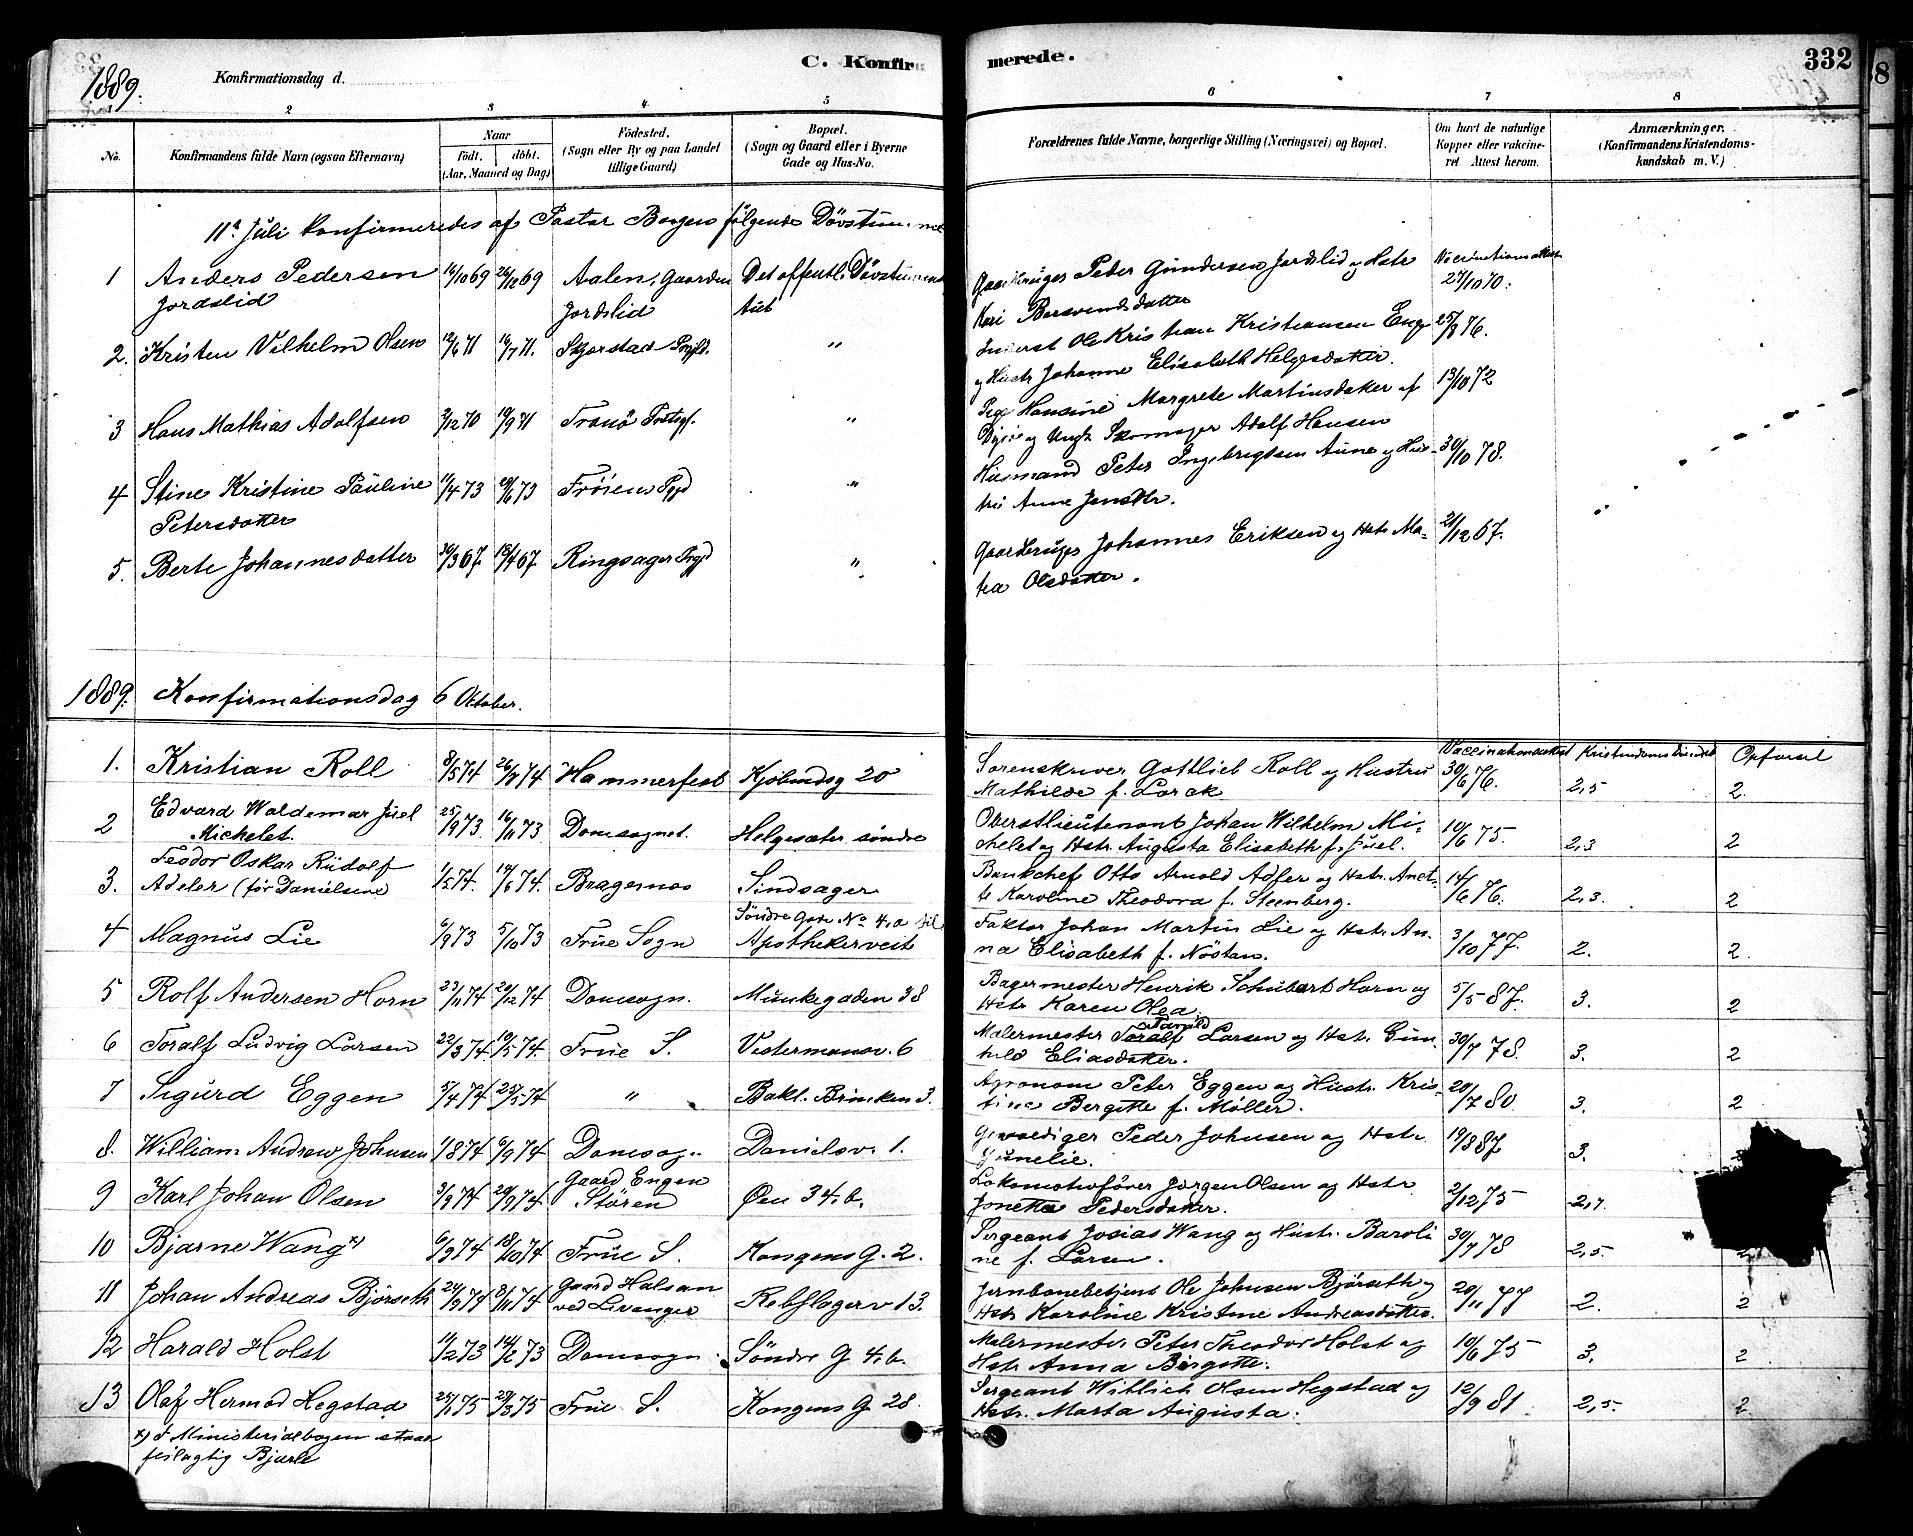 C. Konfirmerede.
332
8
1889.
Konfirmationsdag d.
1 2 3 4 5 6 7 8
No.
Konfirmandens fulde Navn (ogsaa Efternavn)
Naar
födt. döbt.
(Aar, Maaned og Dag)
Födested.
(Sogn eller By og paa Landet
tillige Gaard)
Bopæl.
(Sogn og Gaard eller i Byerne
Gade og Hus-No.
Forældrenes fulde Navne, borgerlige Stilling (Næringsvei) og Bopæl.
Om havt de naturlige
Kopper eller vakcine-
ret Attest herom.
Anmærkninger.
(Konfirmandens Kristendoms-
kundskab m. V.)
11te Juli konfirmeredes af Pastor Borgen følgende Døvstumme
1 Anders Pedersen 14/10 69 26/12 69 Aalen, Gaarden Det offentl. Døvstummeinst Gaardbruger Peder Gundersen Jordslid og Hstr Vaccinationsattest
Jordslid Jordslid Kari Bersvendsdatter 27/10 70.
2. Kristen Vilhelm Olsen 12/6 71 16/7 71. Skjerstad Prgjld. " Inderst Ole Kristian Kristiansen Enge 25/8 76.
og Hustr Johanne Elisabeth Helgesdatter.
3 Hans Mathias Adolfsen 2/12 70 10/9 71 Tranö Prstgj. " Pige Hansine Margrete Martinsdatter af 13/10 72
og Ungk. Skomager Adolf Hansen
4 Stine Kristine Pauline 11/4 73 29/6 73 Fröiens Pgjd " Husmand Peter Ingebrigtsen Aune og Hus- 30/10 78.
Petersdatter tru Anne Jensdtr.
5. Berte Johannesdatter 30/3 67. 15/4 67. Ringsager Prgjd " Gaardbruger Johannes Eriksen og Hstr Ma- 21/12 67.
tea Olsdatter.
1889. Konfirmationsdag 6 Oktober.
Vaccinationsattest Kristendomskundsk Opførsel
1. Kristian Roll 8/5 74 26/8 74 Hammerfest Kjöbmdsg 20 Sorenskriver Gottlieb Roll og Hustru 30/6 76. 2,5 2.
Mathilde f. Lorck
2 Edvard Waldemar Juel 25/9 73. 16/11 73 Domsognet. Helgesæter søndre Oberstlieutenant Johan Wilhelm Mi- 10/6 75. 2,3 2
Michelet. chelet og Hstr. Augusta Elisabeth f. Juel.
3. Feodor Oskar Rudolf 1/5 74. 14/6 74. Bragernes Sindsager Bankchef Otto Arnold Adler og Hstr. Anet- 14/6 76. 2,3. 2
Adeler (før Danielsen) te Karoline Theodora f. Steenberg.
4 Magnus Lie 6/9 73 5/10 73 Frue Sogn Söndre Gade No 4,a til Faktor Johan Martin Lie og Hstr. An- 3/10 77. 2. 2.
Apothekerveit na Elisabeth f. Nöstan.
5 Rolf Andersen Horn 23/11 74 20/12 74 Domsogn. Munkegaden 38 Bagermester Henrik Schubart Horn og 5/5 87. 3. 2
Hstr Karen Olea.
6 Toralf Ludvig Larsen 22/3 74. 10/5 74. Frue S. Vestermansv. 6 Malermester Toralf Larsen og Hstr. Gun- 30/7 78. 3. 2
hild Eliasdatter.
7 Sigurd Eggen 5/4 74 25/5 74 " Bakl. Brinken 3. Agronom Peter Eggen og Hustr. Kris- 20/7 80. 3. 2
tine Bergitte f. Møller.
8. William Andrew Johnsen 1/8 74 6/9 74 Domsogn Danielsv. 1. Peder Johnsen og Hstr. 19/8 87 3.
Gunelie.
9 Karl Johan Olsen 3/9 74 20/9 74 Gaard Engen Øen 34.b. Lokomotivfører Jørgen Olsen og Hstr 2/12 75 2,7.
Stören Jonetta Pedersdatter.
10 Bjarne Wang x) 6/9 74 18/10 74 Frue S. Kongens G. 2. Sergeant Josias Wang og Hustr. Baroli- 30/7 78 2,5. 2
ne f. Larsen.
11 Johan Andreas Bjørseth 24/9 74 8/11 74 Gaard Halsan Rebslagerv 13. Jernbanebetjent Ole Johnsen Bjørseth og 20/11 77 2. 2
ved Levanger Hstr Karoline Kristine Andreasdatter.
12 Harald Holst 11/2 73 14/2 73 Domsogn. Söndre G 4.b. Malermester Peter Theodor Holst og 10/6 75 3. 2
Hstr Anna Birgitte.
13 Olaf Hermod Hegstad 25/1 75 29/3 75 Frue S. Kongens G 28 Sergeant Willich Olsen Hegstad og 12/9 81 2,5. 2
Hstr. Marta Augusta.
x) I Ministerialbogen staar
feilagtig Bjarle